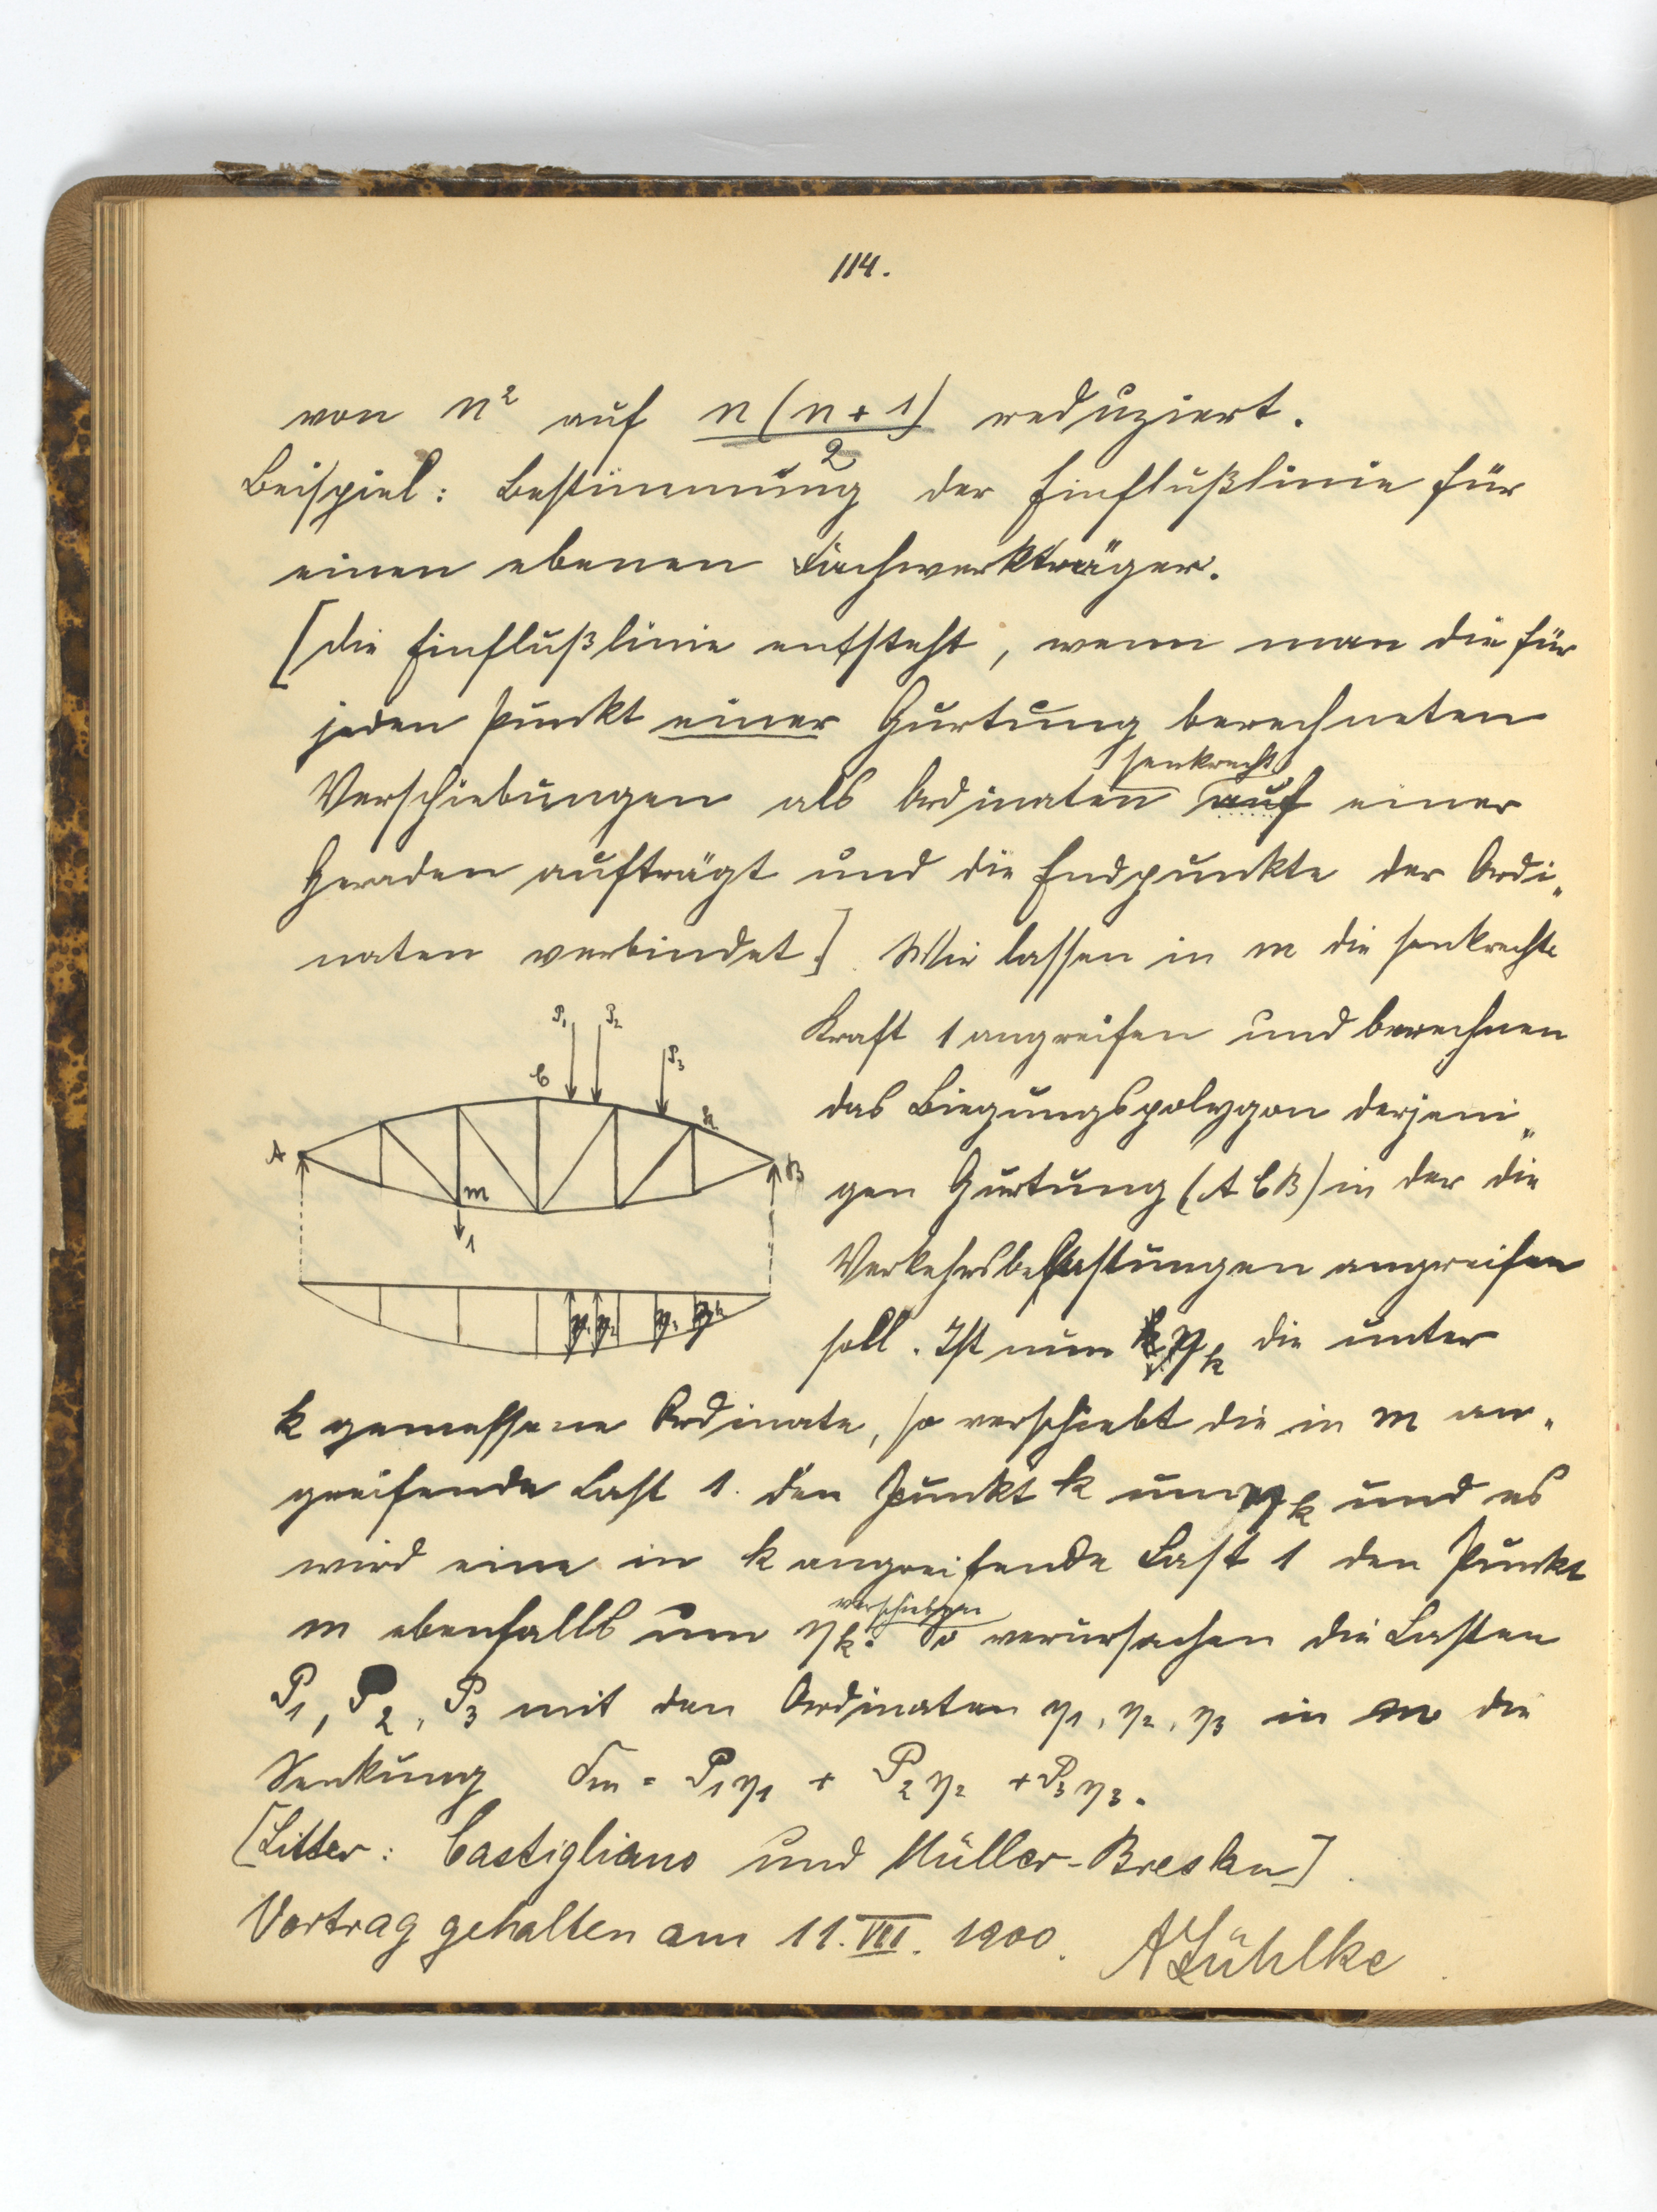 114.
von n² auf n(n+1)/2 reduziert.
Beispiel: Bestimmung der Einflußlinie für
einen ebenen Fachwerkträger.
[Die Einflußlinie entsteht, wenn man die für
jeden Punkt einer Gurtung berechneten
senkrecht
Verschiebungen als Ordinaten auf einer
Geraden aufträgt und die Endpunkte der Ordi„
naten verbindet]. Wir lassen in m die senkrechte
Kraft 1 angreifen und berechnen
das Biegungspolygon derjeni„
gen Gurtung (A C B) in der die
Verkehrsbelastungen angreifen
soll. Ist nun ηk die unter
P1 P2
P3
C
k
A
B
m
1
η1 η2 η3 ηk
k gemessene Ordinate, so verschiebt die in m an„
greifende Last 1 den Punkt k um ηk und es
wird eine in k angreifende Last 1 den Punkt
verschieben
m ebenfalls um ηk. So verursachen die Lasten
P1, P2, P3 mit den Ordinaten η1, η2, η3 in m die
Senkung δm = P1η1 + P2η2 + P3η3.
[Litter: Castigliano und Müller-Breslau].
Vortrag gehalten am 11. VII. 1900. A Lühlke